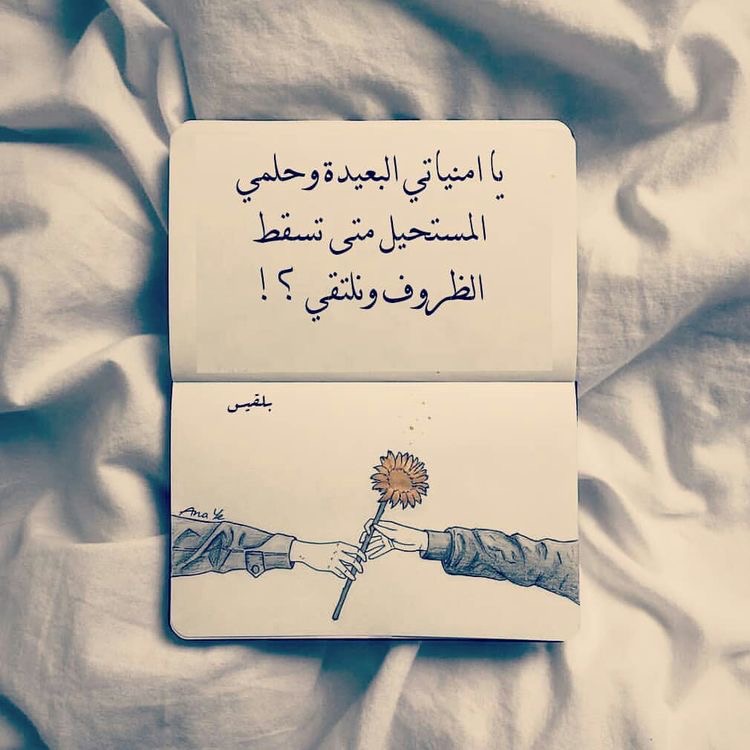 يا امنياتي البعيدة وحلمي
المستحيل متى تسقط
الظروف ونلتقي ؟ !
بلقيس
Ana Ye